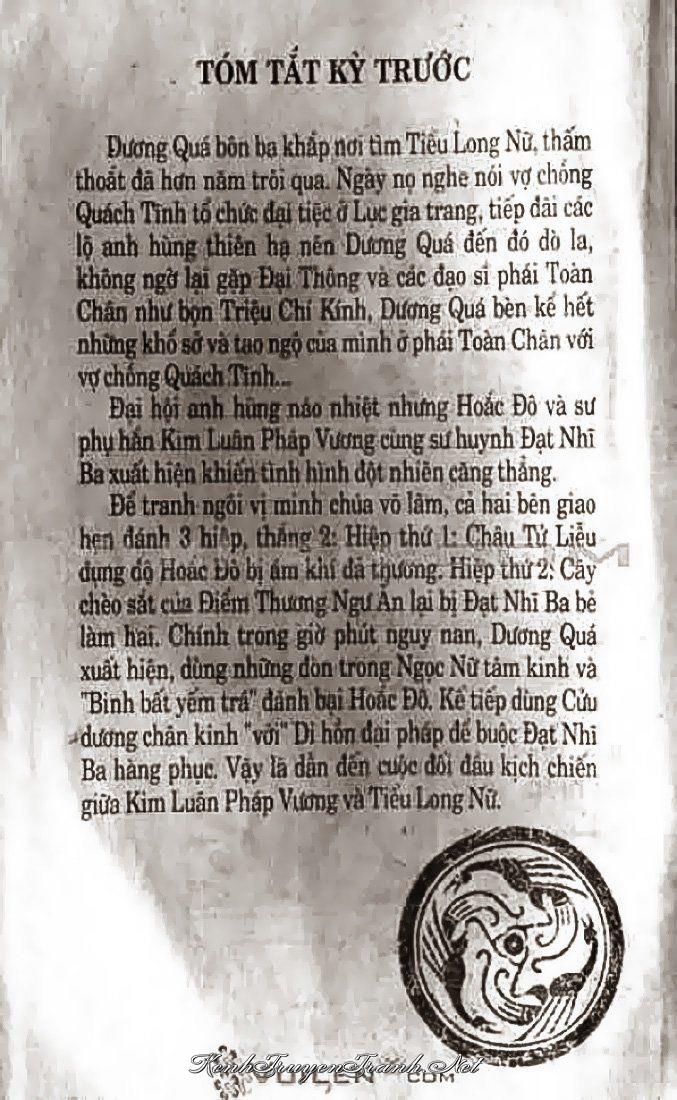 TÓM TẮT KỲ TRƯỚC
Dương Quá bôn ba khắp nơi tìm Tiểu Long Nữ, thấm
thoắt đã hơn năm trôi qua. Ngày nọ nghe nói vợ chồng
Quách Tĩnh tổ chức đại tiệc ở Lục gia trang, tiếp đãi các
lộ anh hùng thiên hạ nên Dương Quá đến đó dò la,
không ngờ lại gặp Đại Thông và các đạo sĩ phái Toàn
Chân như bọn Triệu Chí Kính, Dương Quá bèn kể hết
những khổ sở và tao ngộ của mình ở phái Toàn Chân với
vợ chồng Quách Tĩnh...
Đại hội anh hùng náo nhiệt nhưng Hoắc Đô và sư
phụ hắn Kim Luân Pháp Vương cùng sư huynh Đạt Nhĩ
Ba xuất hiện khiến tình hình đột nhiên căng thẳng.
Để tranh ngôi vị minh chủ võ lâm, cả hai bên giao
hẹn đánh 3 hiệp, thắng 2: Hiệp thứ 1: Châu Tử Liễu
đụng độ Hoắc Đô bị ám khí đả thương. Hiệp thứ 2: Cây
chèo sắt của Điểm Thương Ngư Ẩn lại bị Đạt Nhĩ Ba bẻ
làm hai. Chính trong giờ phút nguy nan, Dương Quá
xuất hiện, dùng những đòn trong Ngọc Nữ tâm kinh và
"Binh bất yếm trá" đánh bại Hoắc Đô. Kế tiếp dùng Cửu
dương chân kinh "với" Di hồn đại pháp để buộc Đạt Nhĩ
Ba hàng phục. Vậy là dẫn đến cuộc đối đầu kịch chiến
giữa Kim Luân Pháp Vương và Tiểu Long Nữ.
KenhTruyenTranh.Net
VUILEN COM